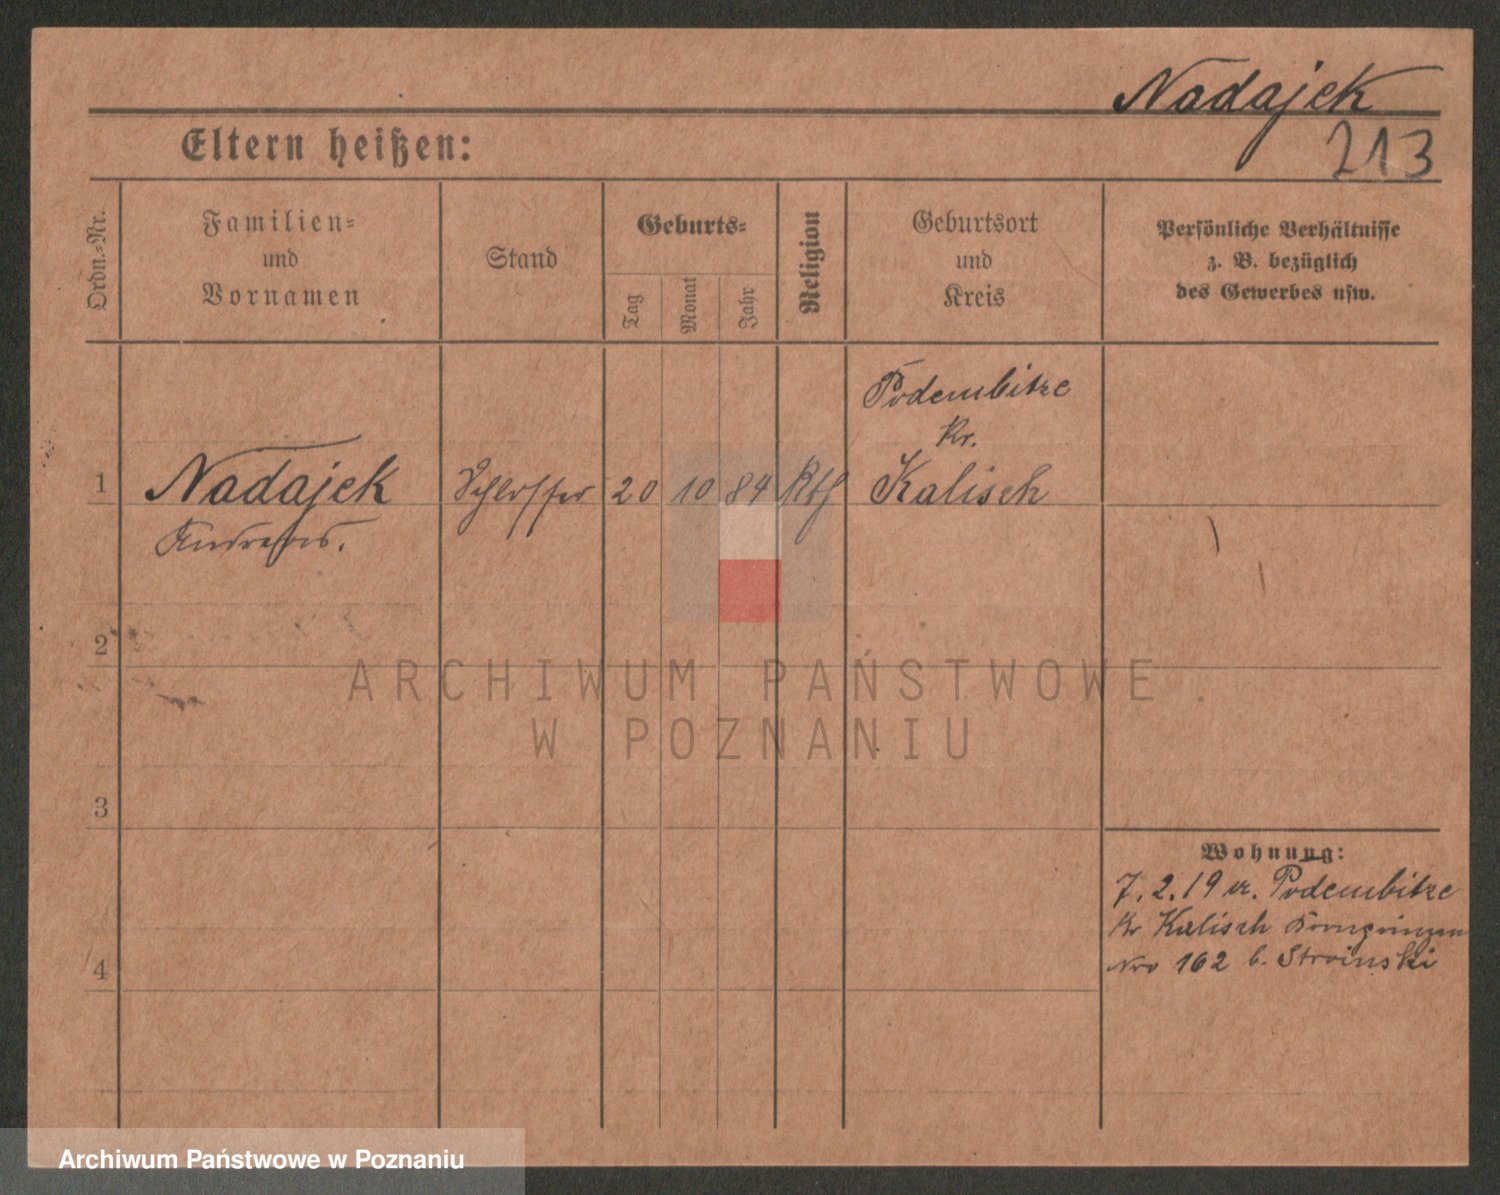 Nadajek
213
Eltern heißen:
Ordn.-Nr.
Familien-
und
Vornamen
Stand
Geburts-
Tag
Monat
Jahr
Religion
Geburtsort
und
Kreis
Persönliche Verhältnisse
z. B. bezüglich
des Gewerbes usw.
Podembitze
Kr.
1 Nadajek Schlosser 20 10 84 Kth Kalisch
Andreas.
2
3
4
Wohnung:
7.2.19 Podembitze
Kr Kalisch
Nro 162 b. Stroinski
ARCHIWUM PAŃSTWOWE
W POZNANIU
Archiwum Państwowe w Poznaniu